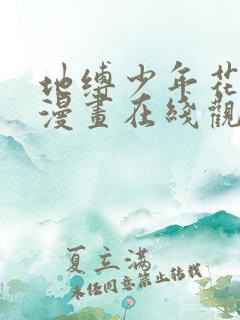 地缚少年花
漫畫在綫觀
夏立满
未任同意禁止转载